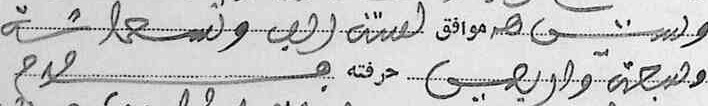 وستين هـ موافق لسنة ألف وتسعمائة
وسبعة وأربعين حرفته فلاح